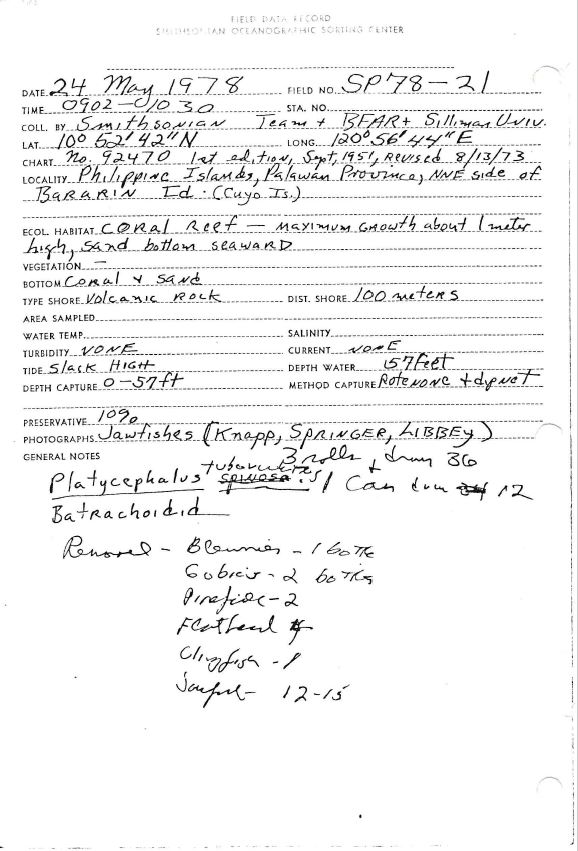 FIELD DATA RECORD
SMITHSONIAN OCEANOGRAPHIC SORTING CENTER
DATE 24 May 1978 FIELD NO. SP78-21
TIME 0902-01030 STA. NO.
COLL. BY Smithsonian Team + BFAR + Silliman Univ.
LAT. 10° 52' 42" N LONG. 120° 56' 44" E
CHART No. 92470 1st edition, Sept, 1951, Revised 8/13/73
LOCALITY Philippine Islands, Palawan Province, NNE side of
BARARIN Id. (Cuyo Is.)
ECOL. HABITAT CORAL Reef — MAXIMUM GROWTH about 1 meter
high, sand bottom seaward
VEGETATION —
BOTTOM Coral + Sand
TYPE SHORE Volcanic Rock DIST. SHORE 100 meters
AREA SAMPLED
WATER TEMP. SALINITY
TURBIDITY NONE CURRENT NONE
TIDE Slack HIGH DEPTH WATER 57 feet
DEPTH CAPTURE 0-57 ft METHOD CAPTURE Rotenone + dipnet
PRESERVATIVE 10%
PHOTOGRAPHS Jawfishes (Knapp, SPRINGER, LIBBEY)
GENERAL NOTES 3 rolls + drum 36
Platycephalus spinosa 1 Can drum 12
Batrachoidid
Removed - Blennies - 1 bottle
Gobies - 2 bottles
Pipefish - 2
Flathead
Clingfish - 1
12-15